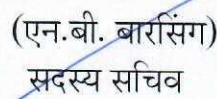 (एन.बी. बारसिंग)
सदस्य सचिव